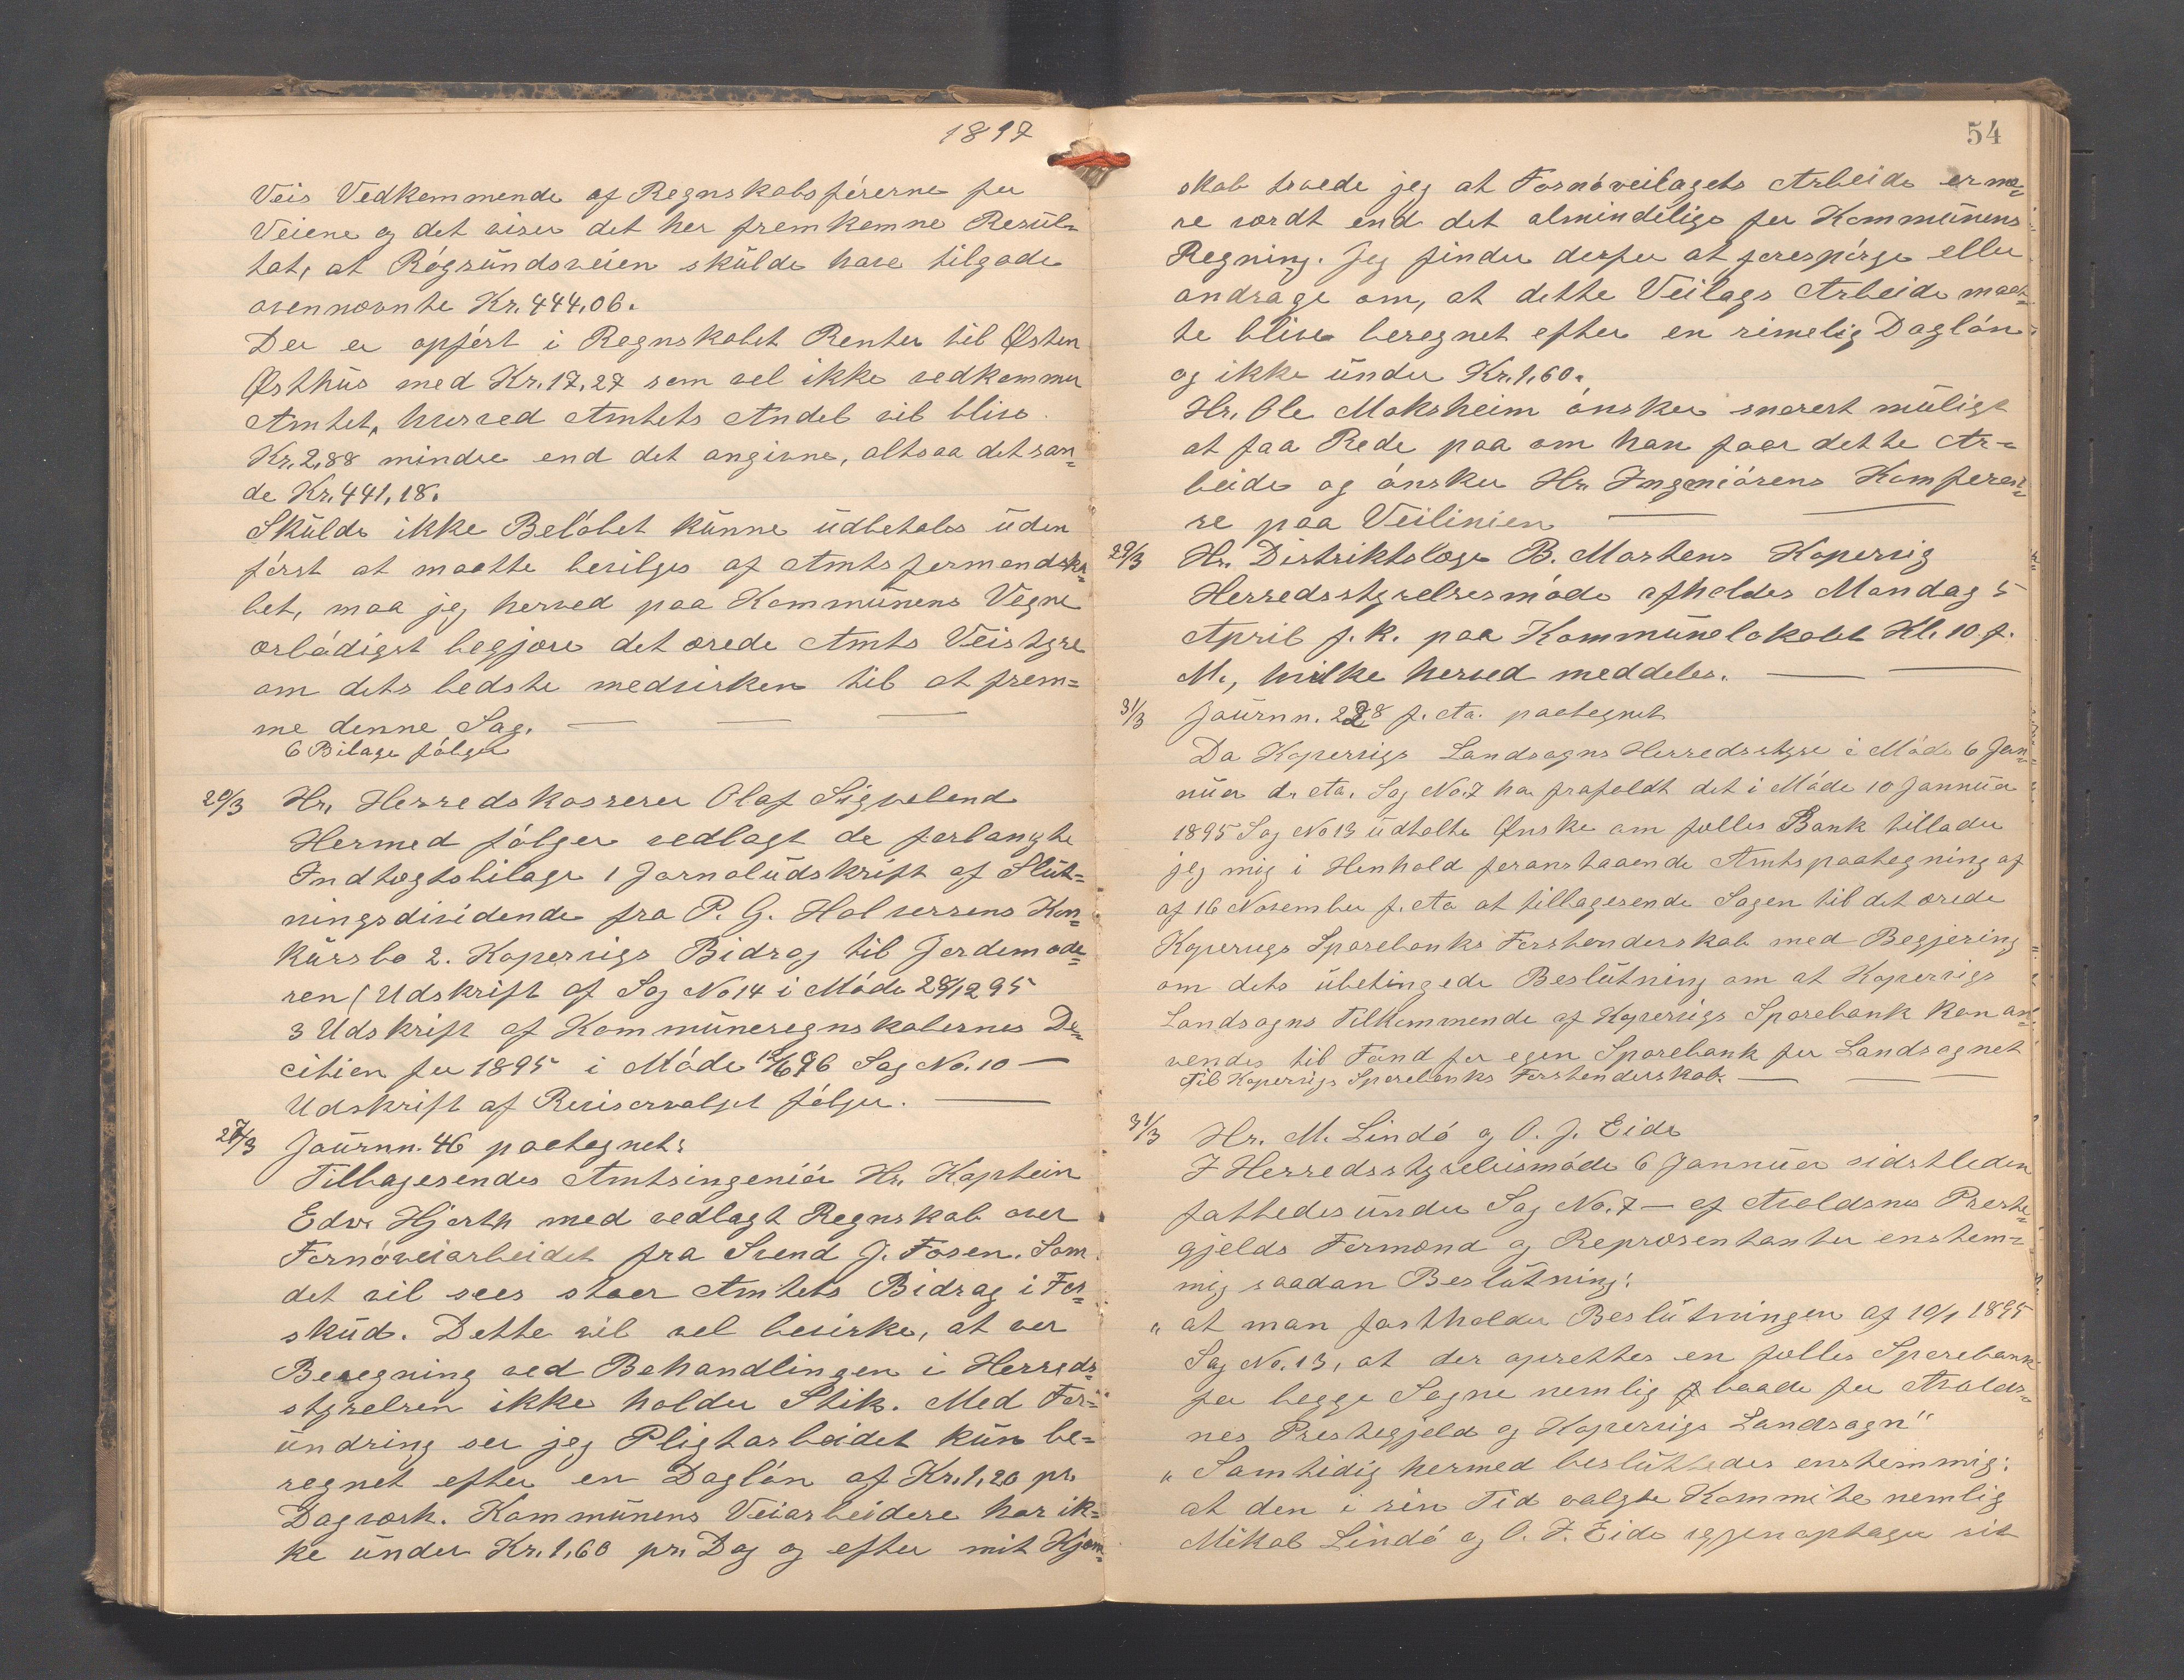 1897
Veis Vedkommende af Regnskabsførerne for
Veiene og det viser det her fremkomne Resul-
tat, at Røgsundsveien skulde have tilgode
ovennævnte Kr. 444,06.
Der er opført i Regnskabet Renter til Østen
Østhus med Kr. 17,27 som vel ikke vedkommer
Amtet, hvorved Amtets Andel vil blive
Kr. 2,88 mindre end det angivne, altsaa det san-
de Kr. 441,18.
Skulde ikke Beløbet kunne udbetales uden
først at maatte bevilges af Amtsformandska-
bet, maa jeg herved paa Kommunens Vegne
ærbødigst begjære det ærede Amts Veistyre
om dets bedste medvirken til at frem-
me denne Sag.
6 Bilage følger
20/3 Hr. Herredskasserer Olaf Sigveland
Hermed følger vedlagt de forlangte
Indtægtsbilage 1 Jornaludskrift af Slut-
ningsdividende fra P. G. Halversens Kon-
kursbo 2. Kopervigs Bidrag til Jordemode-
ren (Udskrift af Sag No 14 i Møde 28/12 95
3 Udskrift af Kommuneregnskabernes De-
citien for 1895 i Møde 12/6 96 Sag No. 10 —
Udskrift af Revisorvalget følger.
27/3 Journn. 46 paategnet:
Tilbagesendes Amtsingeniør Hr. Kaptein
Edv. Hjorth med vedlagt Regnskab over
Fornøveiarbeidet fra Svend J. Fosen. Som
det vil sees staar Amtets Bidrag i For-
skud. Dette vil vel bevirke, at vor
Beregning ved Behandlingen i Herreds-
styrelsen ikke holder Stik. Med For-
undring ser jeg Pligtarbeidet kun be-
regnet efter en Dagløn af Kr. 1,20 pr.
Dagværk. Kommunens Veiarbeidere har ik-
ke under Kr. 1,60 pr. Dag og efter mit Kjen-
54
skab troede jeg at Fornøveilagets Arbeide er mæ-
re værdt end det almindelige for Kommunens
Regning. Jeg finder derfor at forespørge eller
andrage om, at dette Veilags Arbeide maat-
te blive beregnet efter en rimelig Dagløn
og ikke under Kr. 1,60.
Hr. Ole Moksheim ønsker snarest muligt
at faa Rede paa om han faar dette Ar-
beide og ønsker Hr. Ingeniørens Komparen-
se paa Veilinien
29/3 Hr. Distriktslæge B. Martens Kopervig
Herredsstyrelsesmøde afholdes Mandag 5
April f. k. paa Kommunelokalet Kl. 10 f.
M., hvilke herved meddeles.
31/3 Journn. 228 f. Aa. paategnet
Da Kopervigs Landsogns Herredsstyre i Møde 6 Jan-
nuar d. Aa. Sag No. 7 har frafaldt det i Møde 10 Jannuar
1895 Sag No 13 udtalte Ønske om fælles Bank tillader
jeg mig i Henhold foranstaaende Amtspaategning af
af 16 November f. Aa at tilbagesende Sagen til det ærede
Kopervigs Sparebanks Forstanderskab med Begjæring
om dets ubetingede Beslutning om at Kopervigs
Landsogns Tilkommende af Kopervigs Sparebank kan an-
vendes til Fond for egen Sparebank for Landsognet
Til Kopervigs Sparebanks Forstanderskab.
31/3 Hr. M. Lindø og O. J. Eide
I Herredsstyrelsismøde 6 Jannuar sidstleden
fattedes under Sag No. 7 — af Avaldsnes Preste-
gjelds Formænd og Repræsentanter enstem-
mig saadan Beslutning:
„ at man fastholder Beslutningen af 10/1 1895
Sag No. 13, at der oprettes en fælles Sparebank
for begge Sogne nemlig baade for Avalds-
nes Prestegjeld og Kopervigs Landsogn"
„ Samtidig hermed besluttedes enstemmig:
at den i sin Tid valgte Kommite nemlig
Mikal Lindø og O. J. Eide igjenoptager sit